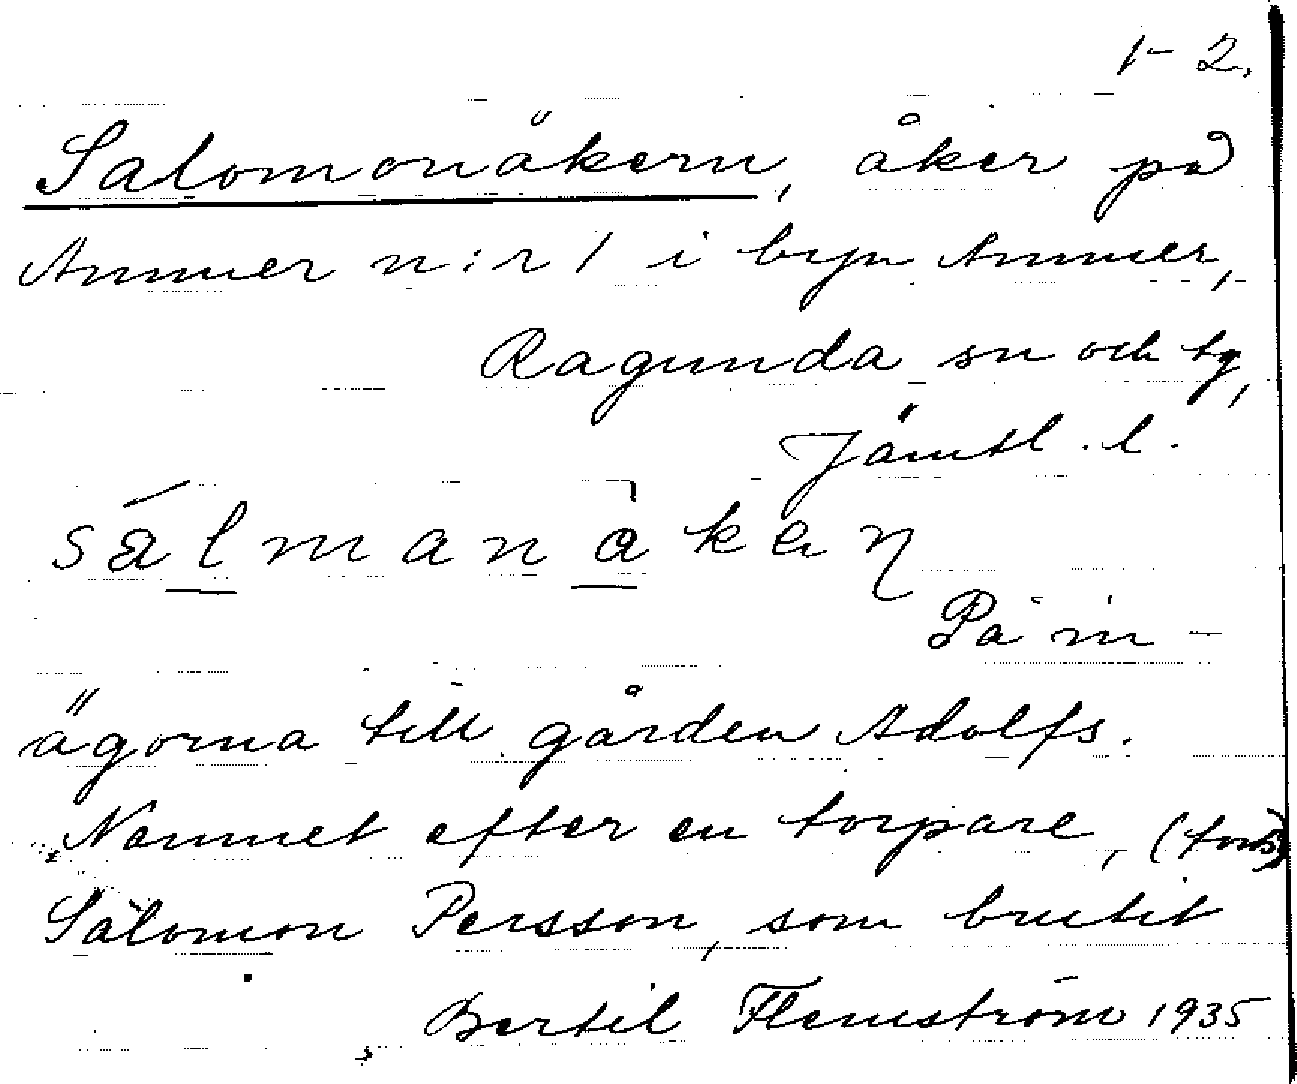 1-2.
Salomonåkern, åker på
Ammer n:r 1 i byn Ammer,
Ragunda sn och tg,
Jämtl. l.
sálmanàkeɳ
På in-
ägorna till gården Adolfs.
Namnet efter en torpare, (forts)
Salomon Persson, som brutit
Bertil Flemström 1935